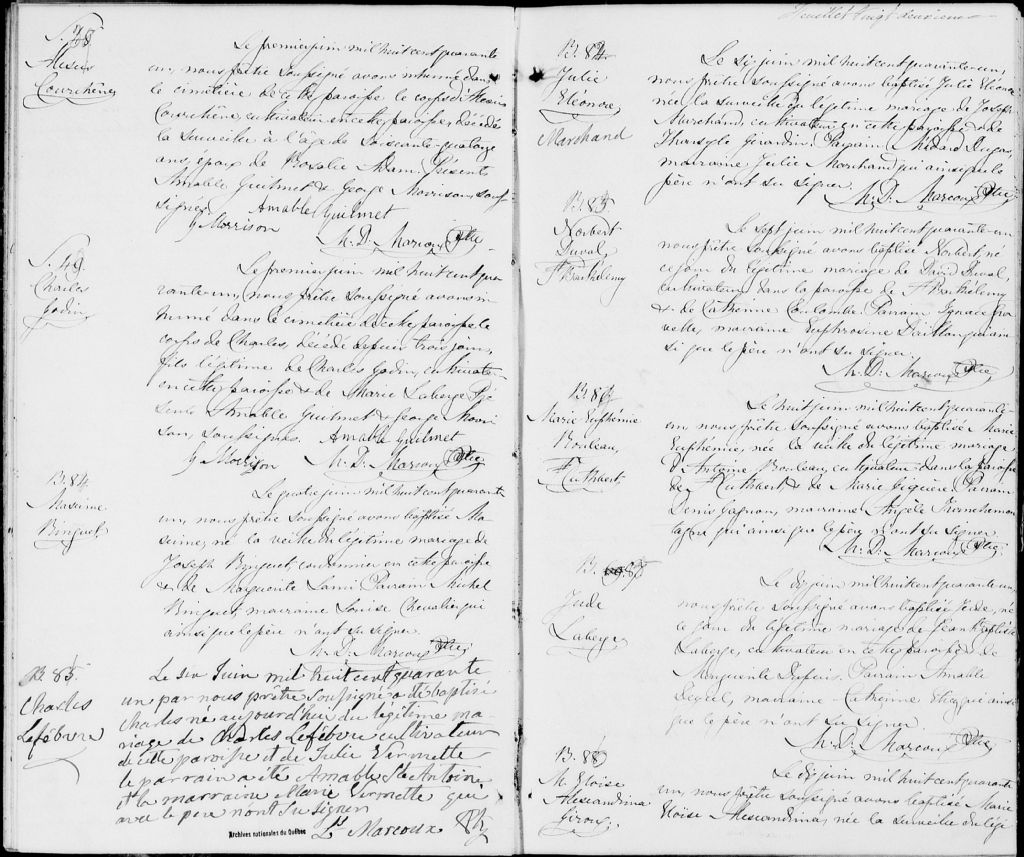 S. 48.
Alexis
Courchêne
Le premier juin mil huit cent quarante
un, nous prêtre soussigné avons inhumé dans
le cimetière de cette paroisse le corps d'Alexis
Courchêne, cultivateur en cette paroisse, décédé
la surveille à l'âge de soixante-quatorze
ans, époux de Rosalie Adam. Présents
Amable Guilmet & George Morrison, sous-
signés. Amable Guilmet
G Morrison
M. D. Marcoux Ptre
S. 49.
Charles
Godin
Le premier juin mil huit cent qua
rante-un, nous prêtre soussigné avons in
humé dans le cimetière de cette paroisse le
corps de Charles, décédé depuis trois jours,
fils légitime de Charles Godin, cultivateur
en cette paroisse & de Marie Laberge. Pré
sents Amable Guilmet & George Morri
son, soussignés. Amable Guilmet
G Morrison M. D. Marcoux Ptre
B. 84.
Maxime
Binguet
Le quatre juin mil huit cent quarante
un, nous prêtre soussigné avons baptisé Ma
xime, né la veille du légitime mariage de
Joseph Binguet, cordonnier en cette paroisse
& de Marguerite Lami. Parrain Michel
Binguet, marraine Louise Chevalier qui
ainsi que le père n'ont su signer.
M. D. Marcoux Ptre
B 83.
Charles
Lefébvre
Le six Juin mil huit cent quarante
un par nous prêtre soussigné a été baptisé
Charles né aujourd'hui du légitime ma-
riage de Charles Lefébvre cultivateur
de cette paroisse et de Julie Vermette
le parrain a été Amable St Antoine
et la marraine Marie Vermette qui
avec le père n'ont su signer
Ls Marcoux Ptr
Archives nationales du Québec
Feuillet vingt deuxième
B. 84.
Julie
Eléonore
Marchand
Le six juin mil huit cent quarante-un,
nous prêtre soussigné avons baptisé Julie Eléonore
née la surveille du légitime mariage de Joseph
Marchand, cultivateur en cette paroisse & de
Tharsyle Girardin. Parrain Médard Dugas,
marraine Julie Marchand qui ainsi que le
père n'ont su signer.
M. D. Marcoux Ptre
B. 85
Norbert
Duval
St Barthélemy
Le sept juin mil huit cent quarante-un
nous prêtre soussigné avons baptisé Norbert, né
ce jour du légitime mariage de David Duval,
cultivateur dans la paroisse de St Barthélemy
& de Catherine Coulombe. Parrain Ignace
marraine Euphrosine qui ain
si que le père n'ont su signer.
M. D. Marcoux Ptre
B. 86
Marie Euphémie
Bouleau,
St Cuthbert
Le huit juin mil huit cent quarante-
un, nous prêtre soussigné avons baptisé Marie
Euphémie, née la veille du légitime mariage
d'Antoine Bouleau, cultivateur dans la paroisse
de St Cuthbert & de Marie Piguère. Parrain
Denis Gagnon, marraine Angèle
qui ainsi que le père n'ont su signer
M. D. Marcoux Ptre
B. 87
Jude
Laberge
Le dix juin mil huit cent quarante-un,
nous prêtre soussigné avons baptisé Jude, né
ce jour du légitime mariage de Jean Baptiste
Laberge, cultivateur en cette paroisse & de
Marguerite Dupuis. Parrain Amable
marraine Catherine qui ainsi
que le père n'ont su signer
M. D. Marcoux Ptre
B. 88
M. Eloise
Alexandrina
Giroux
Le dix juin mil huit cent quarante
un, nous prêtre soussigné avons baptisé Marie
Eloïse Alexandrina, née la surveille du légi